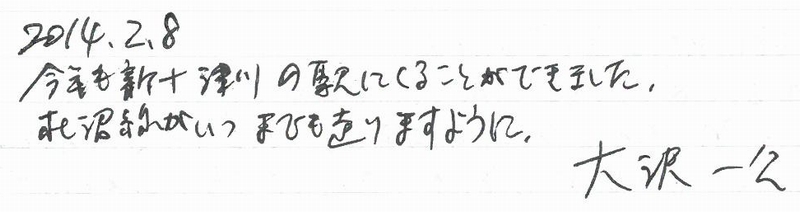 2014.2.8
今年も新十津川の駅にくることができました.
札沼線がいつまでも走りますように.
大沢一公